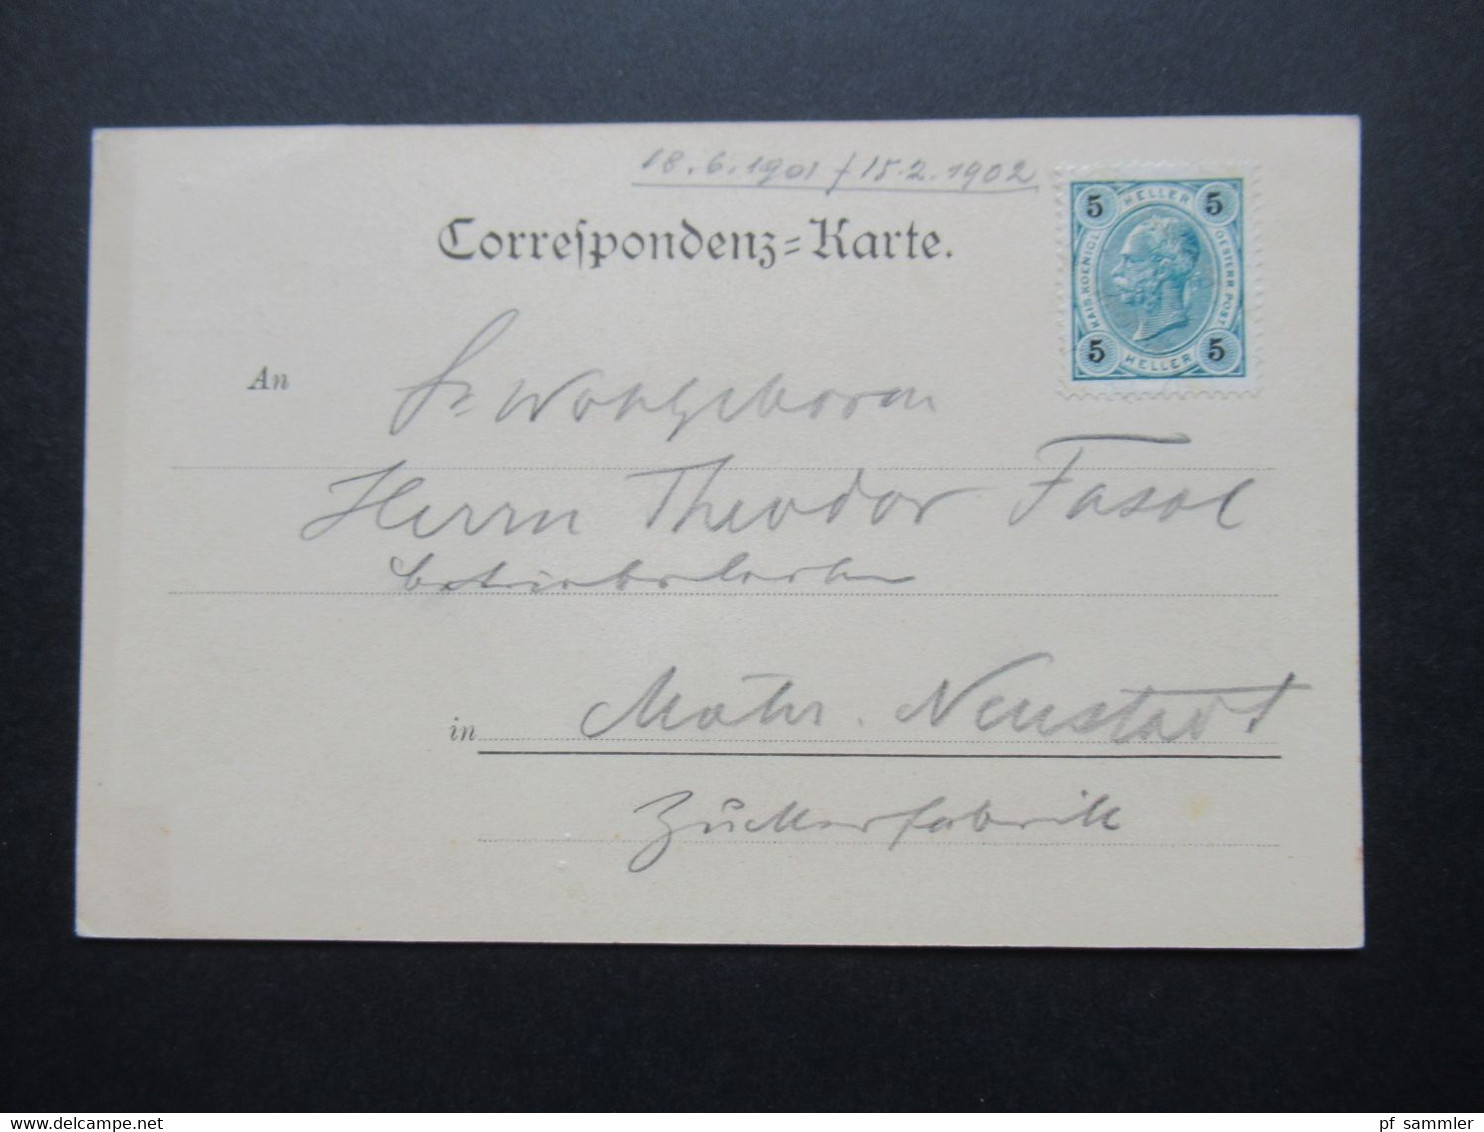 18.6.1901 / 15.2.1902
Correspondenz-Karte.
5 HELLER 5
KAIS. KOENIGL. OESTERR. POST
5 HELLER 5
An Sr Wohlgeboren
Herrn Theodor Fasol
in Mähr. Neustadt
Zuckerfabrik
www.delcampe.net
pf_sammler